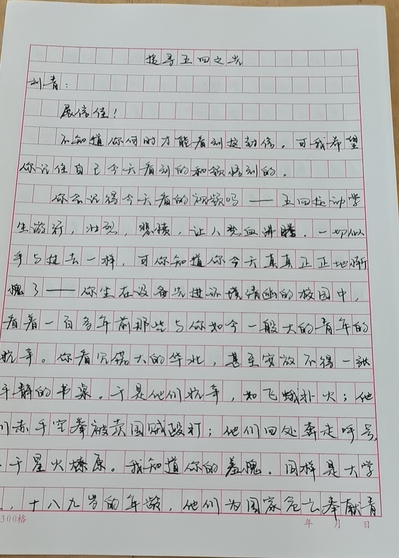 追寻五四之光
刘青：
展信佳！
不知道你何时才能看到这封信，可我希望
你记住自己今天看到的和领悟到的。
你会记得今天看的视频吗——五四运动学
生游行，壮烈，悲愤，让人热血沸腾。一切似
乎与往去一样，可你知道你今天真真正正地惭
愧了——你坐在设备先进环境清幽的校园中，
看着一百多年前那些与你如今一般大的青年的
抗争。你看见偌大的华北，甚至安放不得一张
平静的书桌。于是他们抗争，如飞蛾扑火；他
们赤手空拳被卖国贼殴打；他们四处奔走呼号，
于星火燎原。我知道你的羞愧。同样是大学
，十八九岁的年龄，他们为国家危亡奉献青
300格 年 月 日